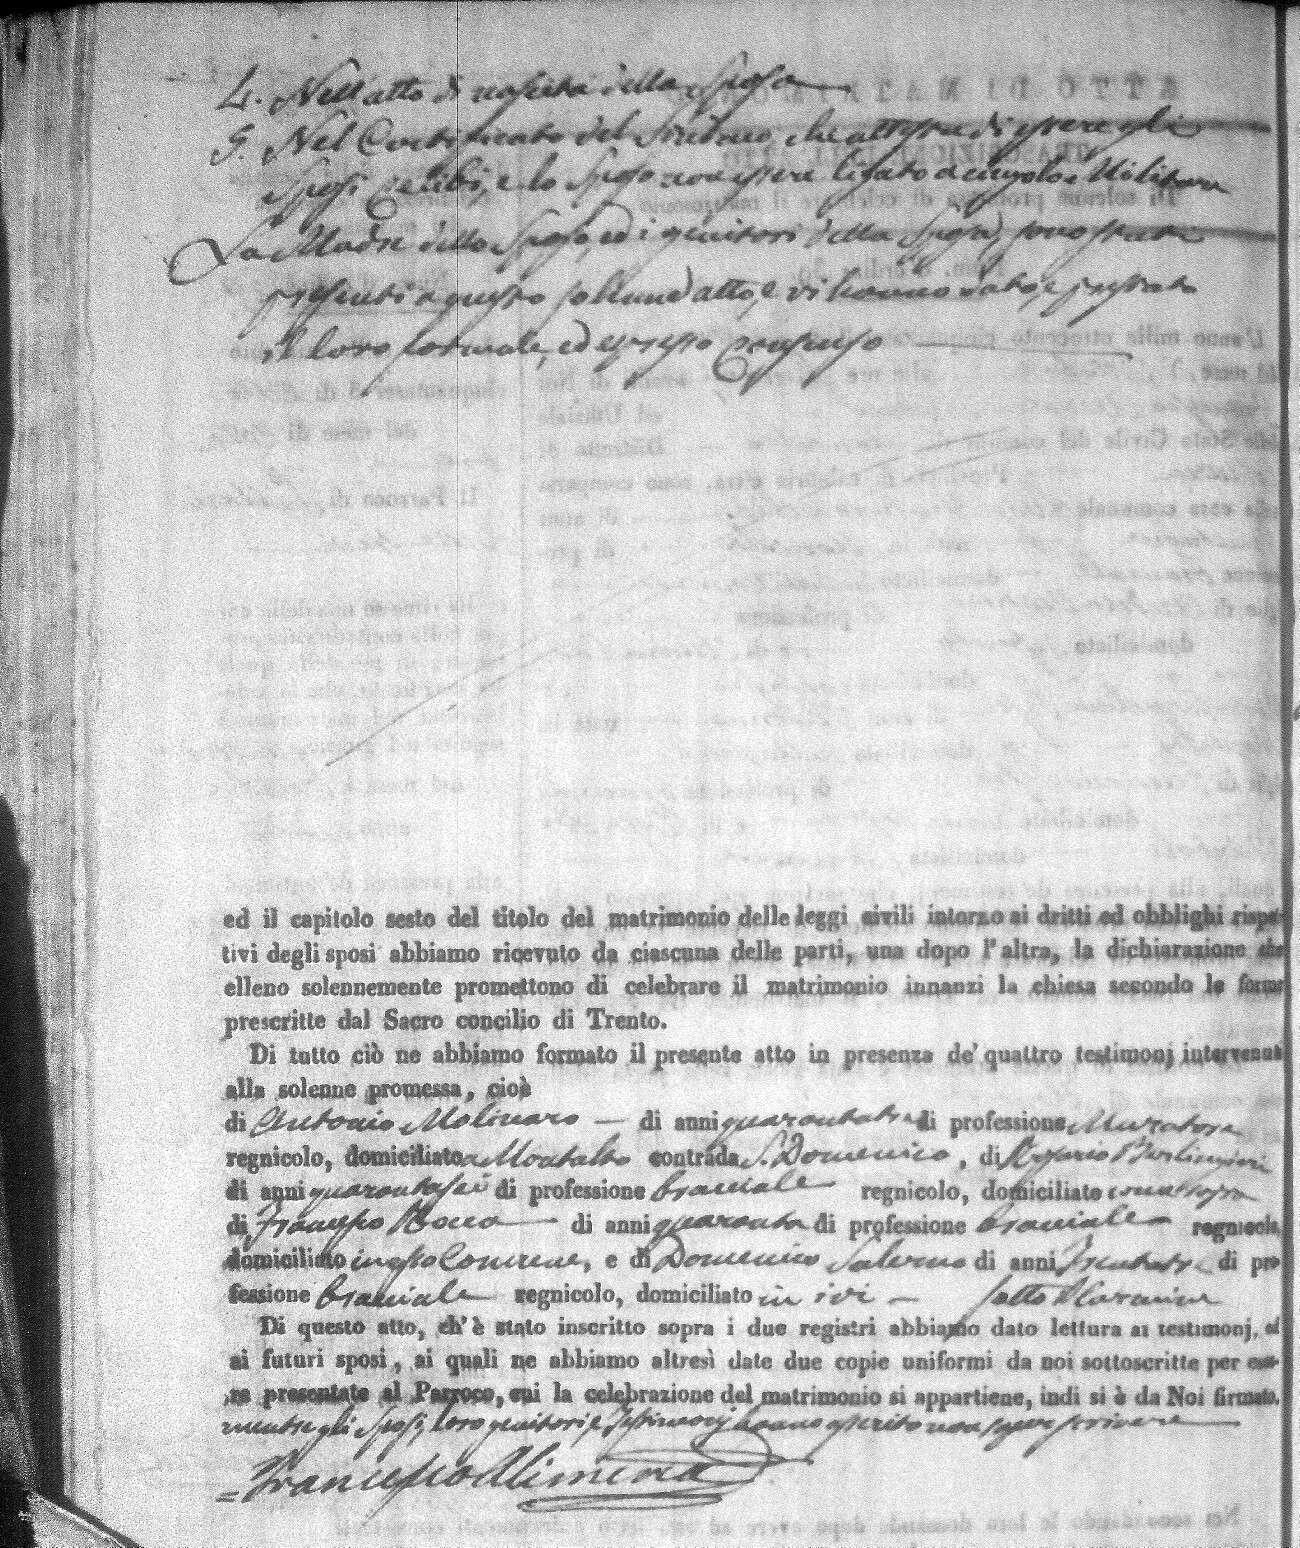 4. Nell'atto di nascita della Sposa
5. Nel Certificato del Sindaco, che attesta di essere gli
Sposi celibi, e lo Sposo non essere ligato a cingolo Militare
La Madre dello Sposo, ed i genitori della Sposa, sono stati
presenti a questo solenne atto, e vi hanno dato, e prestato
il loro formale, ed espresso Consenso
ed il capitolo sesto del titolo del matrimonio delle leggi civili intorno ai dritti ed obblighi rispet-
tivi degli sposi abbiamo ricevuto da ciascuna delle parti, una dopo l'altra, la dichiarazione che
elleno solennemente promettono di celebrare il matrimonio innanzi la chiesa secondo le forme
prescritte dal Sacro concilio di Trento.
Di tutto ciò ne abbiamo formato il presente atto in presenza de' quattro testimonj intervenuti
alla solenne promessa, cioè
di Antonio Molinaro — di anni quarantatre di professione Muratore
regnicolo, domiciliato a Montalto contrada S. Domenico, di Rosario Berlingieri
di anni quarantasei di professione bracciale regnicolo, domiciliato
di Francesco Rocca — di anni quaranta di professione bracciale regnicolo,
domiciliato in esso Comune, e di Domenico Salerno di anni trentatre di pro
fessione bracciale regnicolo, domiciliato in ivi — sotto
Di questo atto, ch'è stato inscritto sopra i due registri abbiamo dato lettura ai testimonj, ed
ai futuri sposi, ai quali ne abbiamo altresì date due copie uniformi da noi sottoscritte per es-
re presentate al Parroco, cui la celebrazione del matrimonio si appartiene, indi si è da Noi firmato,
mentre gli Sposi, loro genitori e Testimonj hanno asserito non saper scrivere
= Francesco Alimena